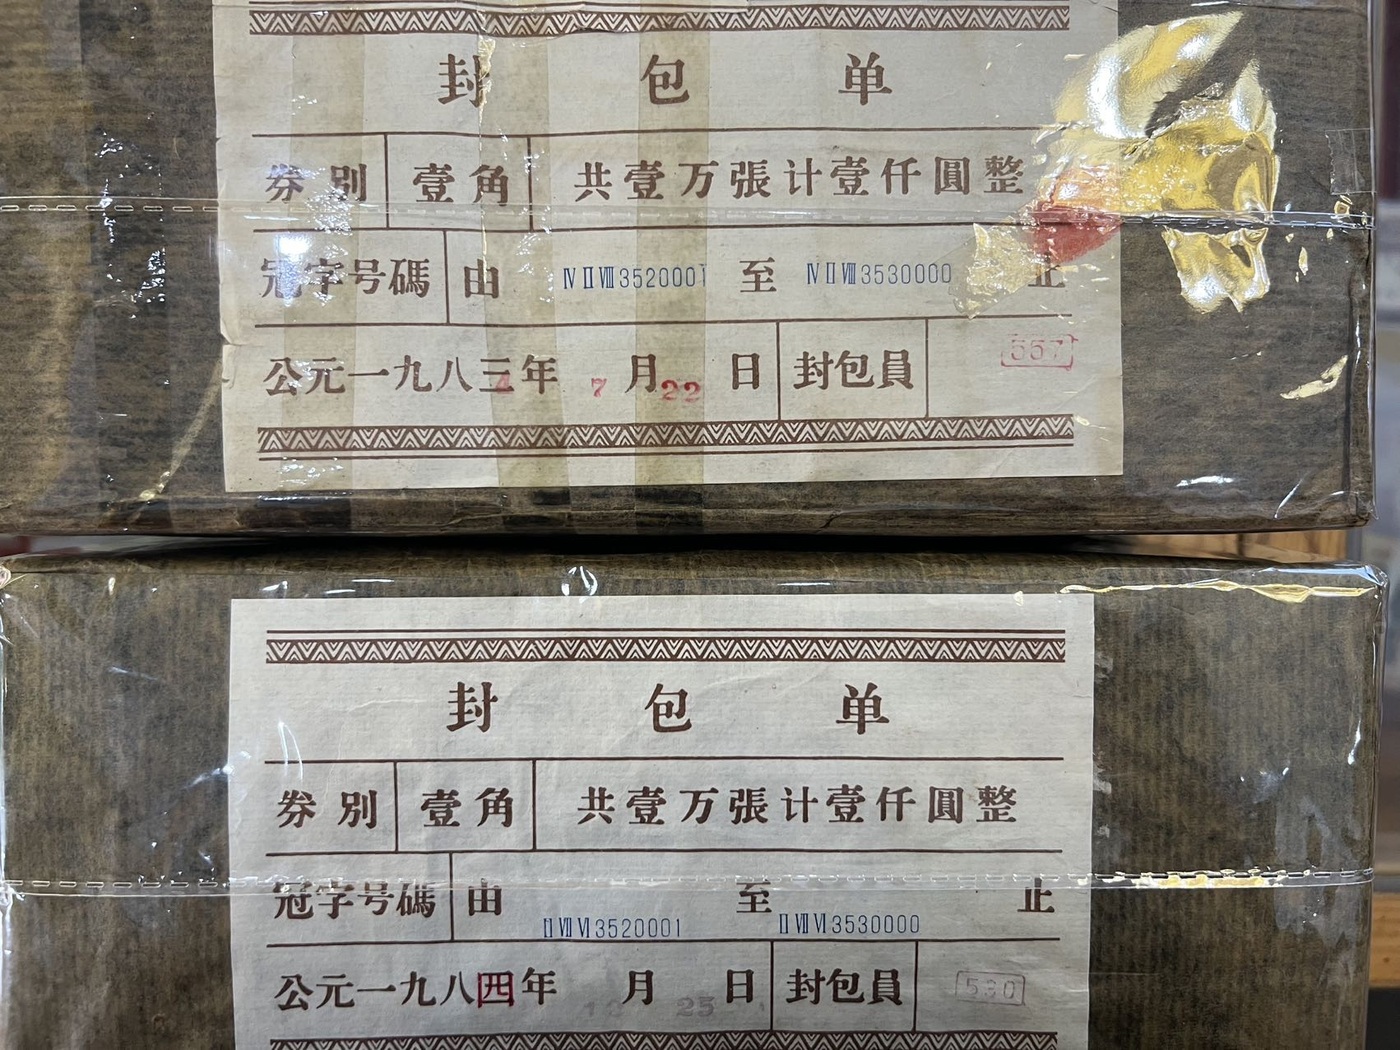 封 包 单
券别 壹角 共壹万張计壹仟圓整
冠字号碼 由 ⅣⅡⅧ3520001 至 ⅣⅡⅧ3530000 止
公元一九八三4年 7 月22 日 封包員 557
封 包 单
券别 壹角 共壹万張计壹仟圓整
冠字号碼 由 ⅡⅦⅥ3520001 至 ⅡⅦⅥ3530000 止
公元一九八四年 月 25 日 封包員 530